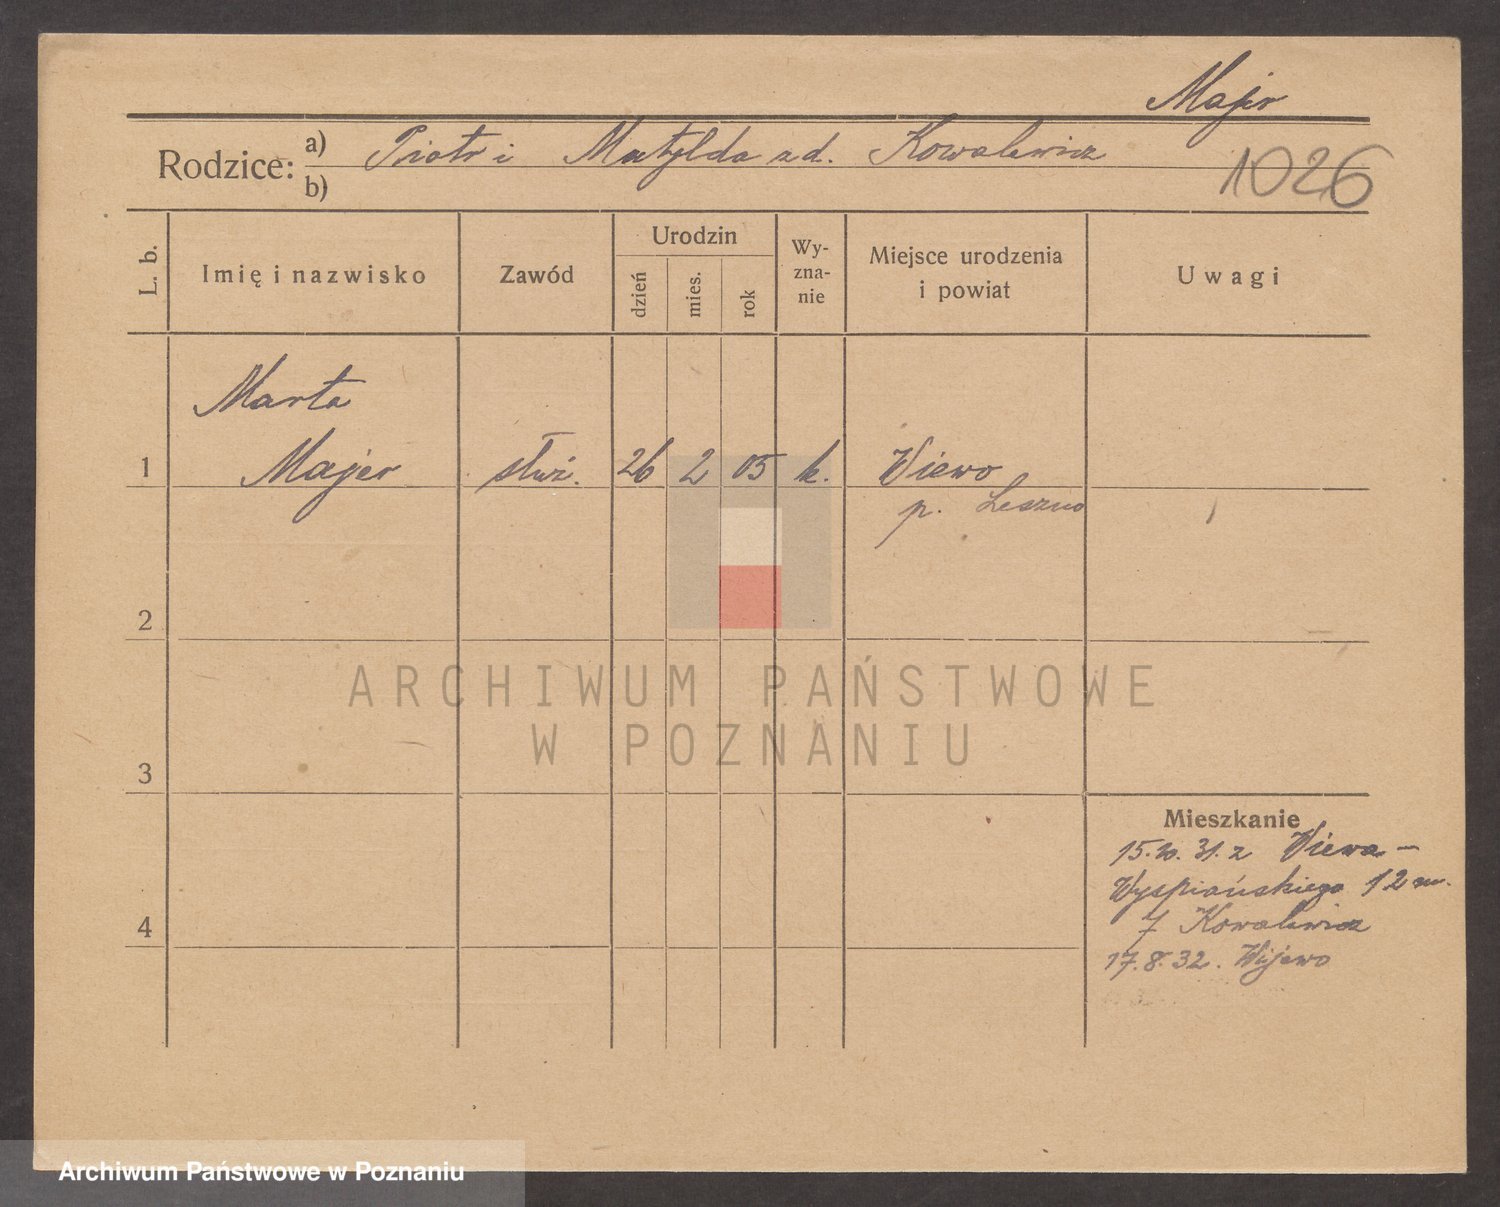 Majer
Rodzice: a) Piotr i Matylda zd. Kowalewicz
b)
1026
L. b.
Imię i nazwisko
Zawód
Urodzin
dzień
mies.
rok
Wy-
zna-
nie
Miejsce urodzenia
i powiat
Uwagi
Marta
1 Majer służ. 26 2 05 k. Wiewo
p. Leszno
2
ARCHIWUM PAŃSTWOWE
W POZNANIU
3
Mieszkanie
15.10.31. z Wiewa –
Wyspiańskiego 12 m.
7 Kowalewicz
4
17.8.32. Wijewo
Archiwum Państwowe w Poznaniu